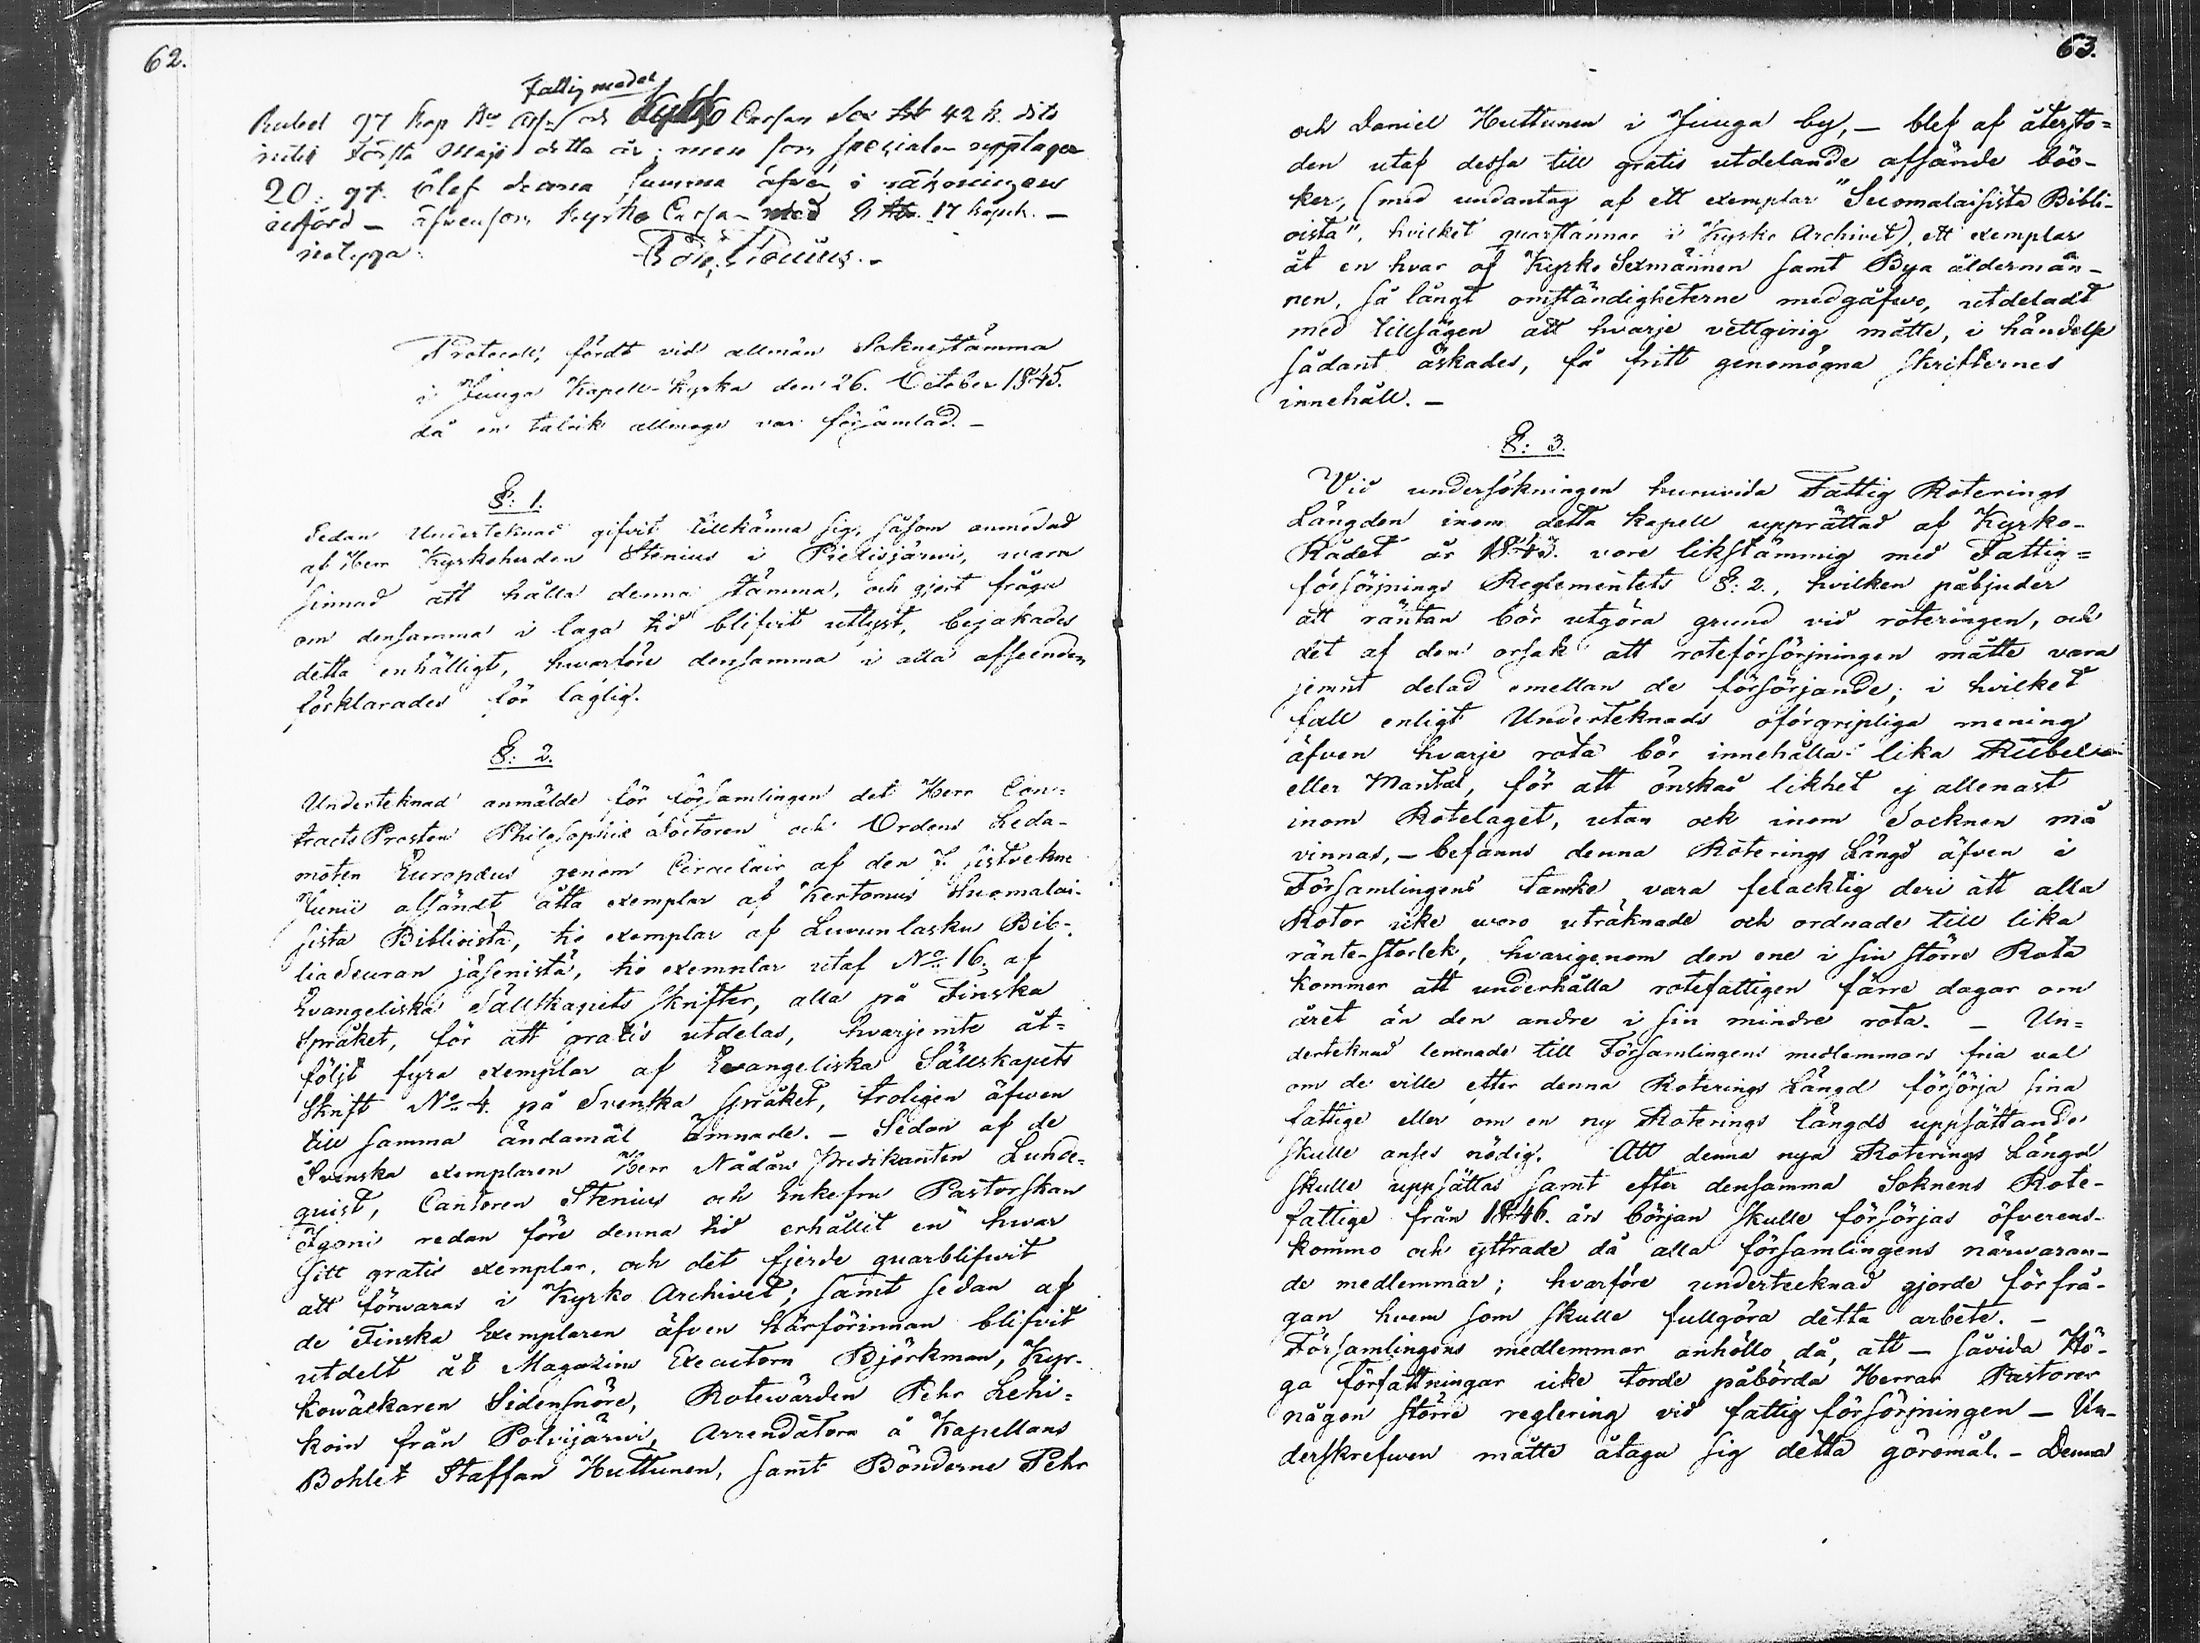 62.
Fattig medel
Rubel 97 kop Cassan 42 k. dito
intil första Maji detta år; men som specialen upptager
20: 97. blef denna summa äfven i räkningen
införd – äfvensom Kyrko Cassan med 17 kopek. –

Protocoll, fördt vid allmän Soknestämma
i Juuga Kapell-Kyrka den 26. October 1845.
då en talrik allmoge var församlad. –
§: 1.
Sedan Undertecknad gifvit tillkänna sig, såsom anmodad
af Herr Kyrkoherden Stenius i Pielisjärwi, wara
sinnad att hålla denna stämma, och gjort fråga
om densamma i laga tid blifvit utlyst, bejakades
detta enhälligt, hwarföre densamma i alla afseenden
förklarades för laglig.
§: 2.
Underteknad anmälde för församlingen det Herr Con-
tracts Prosten Philosophiæ Doctoren och Ordens Leda-
moten Europæus genom Circulair af den 7. sistvekne
Junii afsändt åtta exemplar af Kertomus Suomalai-
sista Biblioista, tio exemplar af Luvunlasku Bib-
lia Seuran jäsenistä, tio exemplar utaf No: 16. af
Evangeliska Sällskapets Skrifter, alla på Finska
Språket, för att gratis utdelas, hvarjemte åt-
följt fyra exemplar af Evangeliska Sällskapets
Skrift No: 4. på Svenska språket, troligen äfwen
till samma ändamål ämnade. – Sedan af de
Svenska exemplaren Herr Nådårs Predikanten Lunde-
quist, Cantoren Stenius och Enkefru Pastorskan
Igoni redan före denna tid erhållit en hwar
sitt gratis exemplar, och det fjerde quarblifwit
att förwaras i Kyrko Archivet; samt sedan af
de Finska Exemplaren äfven härförinnan blifvit
utdelt åt Magazins Executorn Björkman, Kyr-
kowäckaren Sidensnöre, Rotewärden Pehr Lehi-
koin från Polvijärwi, Arrendatorn å Kapellans
Bohlet Staffan Huttunen, samt Bönderne Pehr
63.
och Daniel Huttunen i Juuga by, – blef af återsto-
den utaf dessa till gratis utdelande afsände böc-
ker, (med undantag af ett exemplar "Suomalaisista Bibli-
oista", hvilket quarstannar i Kyrko Archivet), ett exemplar
åt en hvar af Kyrko Sexmännen samt Bya åldermän-
nen, så långt omständigheterne medgåfwo, utdeladt
med tillsägen att hvarje vettgirig måtte, i händelse
sådant äskades, få fritt genomögna skrifternes
innehåll. –
§: 3.
Vid undersökningen huruvida Fattig Roterings
Längden inom detta Kapell upprättad af Kyrko-
Rådet år 1843. vore likstämmig med Fattig-
försörjnings Reglementets §: 2., hvilken påbjuder
att räntan bör utgöra grund vid roteringen, och
det af den orsak att roteförsörjningen måtte vara
jemnt delad emellan de försörjande; i hvilket
fall enligt Underteknads oförgripliga mening
äfven hvarje rota bör innehålla lika Rubel
eller Mantal, för att önskad likhet ej allenast
inom Rotelaget, utan ock inom Socknen må
vinnas, – befanns denna Roterings Längd äfven i
Församlingens tanke vara felacktig deri att alla
Rotor icke woro uträknade och ordnade till lika
ränte-storlek, hvarigenom den ene i sin större Rota
kommer att underhålla rotefattigen färre dagar om
året än den andre i sin mindre rota. – Un-
derteknad lemnade till Församlingens medlemmars fria val
om de ville efter denna Roterings Längd försörja sina
fattige eller om en ny Roterings längds uppsättande
skulle anses nödig. Att denna nya Roterings Längd
skulle uppsättas samt efter densamma Soknens Rote-
fattige från 1846. års början skulle försörjas öfverens-
kommo och yttrade då alla församlingens närwaran-
de medlemmar; hvarföre undertecknad gjorde förfrå-
gan hvem som skulle fullgöra detta arbete. –
Församlingens medlemmar anhöllo då, att – såvida Hö-
ga författningar icke torde påbörda Herrar Pastorer
någon större reglering vid fattig försörjningen – Un-
derskrefwen måtte åtaga sig detta göromål. – Denna